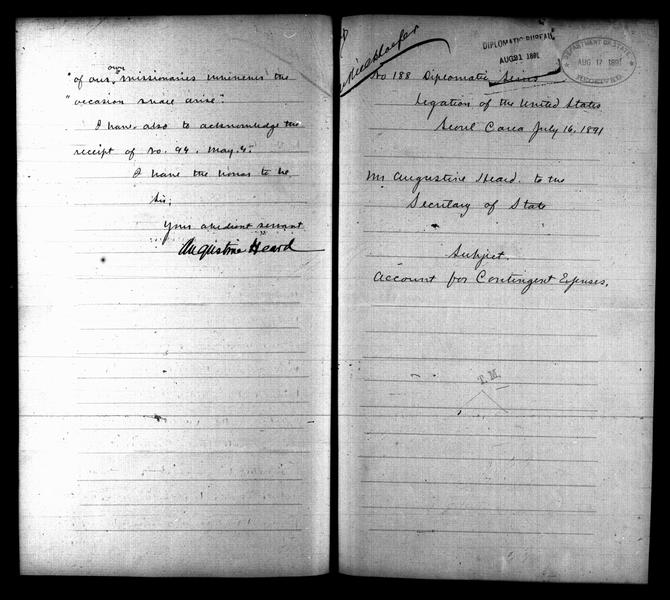 "of our own missionaries whenever the
"occasion shall arise."
I have also to acknowledge the
receipt of No. 94. May 4.
I have the honor to be
Sir,
Your obedient servant
Augustine Heard
DIPLOMATIC BUREAU
AUG 21 1891
DEPARTMENT OF STATE
AUG 17 1891
RECEIVED
No 188 Diplomatic Series
Legation of the United States
Seoul Corea July 16, 1891
Mr Augustine Heard to the
Secretary of State
Subject.
Account for Contingent Expenses.
T.M.